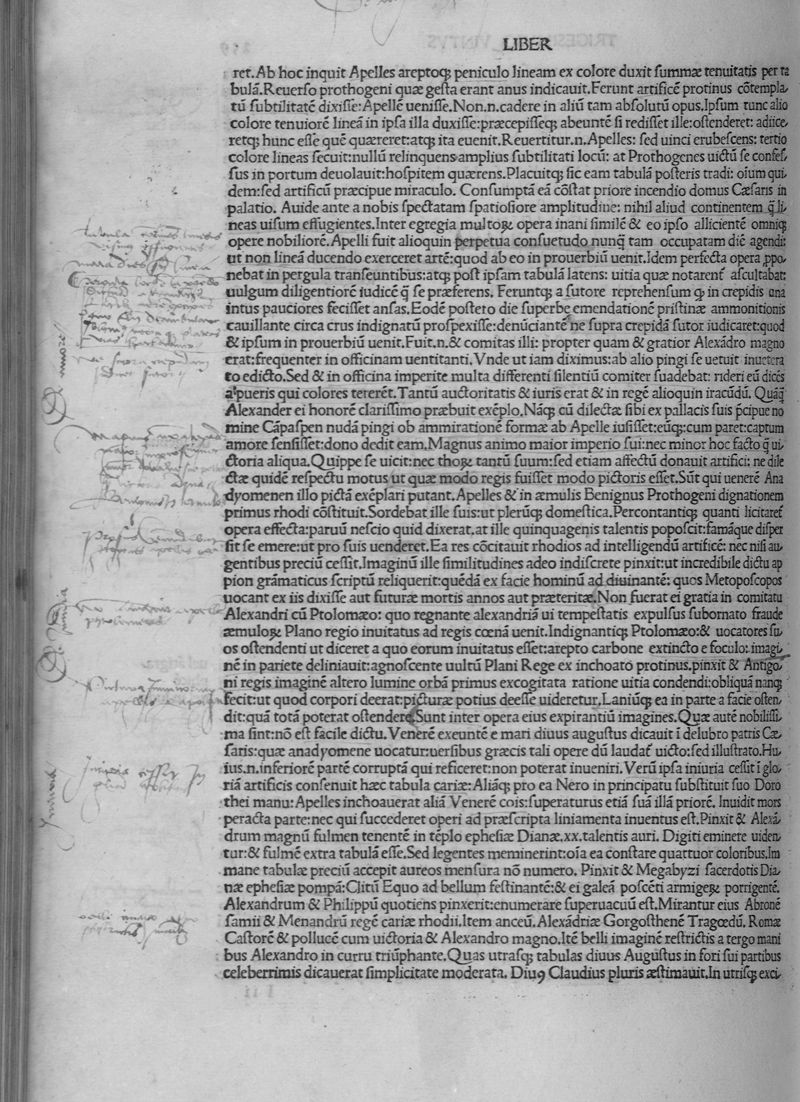 LIBER
ret.Ab hoc inquit Apelles areptoq; peniculo lineam ex colore duxit summæ tenuitatis per ta
bulã.Reuerso prothogeni quæ gesta erant anus indicauit.Ferunt artificẽ protinus cõtempla
tũ subtilitatẽ dixisse:Apellẽ uenisse.Non.n.cadere in aliũ tam absolutũ opus.Ipsum tunc alio
colore tenuiorẽ lineã in ipsa illa duxisse:præcepisseq; abeuntẽ si redisset ille:ostenderet: adiice
retq; hunc esse quẽ quæreret:atq; ita euenit.Reuertitur.n.Apelles: sed uinci erubescens: tertio
colore lineas secuit:nullũ relinquens amplius subtilitati locũ: at Prothogenes uictũ se confes
sus in portum deuolauit:hospitem quærens.Placuitq; sic eam tabulã posteris tradi: oium qui
dem:sed artificũ præcipue miraculo. Consumptã eã cõstat priore incendio domus Cæsaris in
palatio. Auide ante a nobis spectatam spatiosiore amplitudine: nihil aliud continentem q̃ li
neas uisum effugientes.Inter egregia multoꝝ opera inani similẽ & eo ipso allicientẽ omniq;
opere nobiliorẽ.Apelli fuit alioquin perpetua consuetudo nunq̃ tam occupatam diẽ agendi:
ut non lineã ducendo exerceret artẽ:quod ab eo in prouerbiũ uenit.Idem perfecta opera ꝓpo
nebat in pergula transeuntibus:atq; post ipsam tabulã latens: uitia quæ notarent᷑ ascultabat:
uulgum diligentiorẽ iudicẽ q̃ se præferens. Feruntq; a sutore reprehensum ꝙ in crepidis una
intus pauciores fecisset ansas.Eodẽ postero die superbe emendationẽ pristinæ ammonitionis
cauillante circa crus indignatũ prospexisse:denũciantẽ ne supra crepidã sutor iudicaret:quod
& ipsum in prouerbiũ uenit.Fuit.n.& comitas illi: propter quam & gratior Alexãdro magno
erat:frequenter in officinam uentitanti.Vnde ut iam diximus:ab alio pingi se uetuit inuetera
to edicto.Sed & in officina imperite multa differenti silentiũ comiter suadebat: rideri eũ dicẽs
a pueris qui colores tererẽt.Tantũ auctoritatis & iuris erat & in regẽ alioquin iracũdũ. Quãq̃
Alexander ei honorẽ clarissimo præbuit exẽplo.Nãq; cũ dilectã sibi ex pallacis suis p̃cipue no
mine Cãpaspen nudã pingi ob ammirationẽ formæ ab Apelle iusisset:eũq;:cum paret:captum
amore sensisset:dono dedit eam.Magnus animo maior imperio sui:nec minor hoc facto q̃ ui
ctoria aliqua.Quippe se uicit:nec thoꝝ tantũ suum:sed etiam affectũ donauit artifici: ne dile
ctæ quidẽ respectu motus ut quæ modo regis fuisset modo pictoris esset.Sũt qui uenerẽ Ana
dyomenen illo pictã exẽplari putant.Apelles & in æmulis Benignus Prothogeni dignationem
primus rhodi cõstituit.Sordebat ille suis:ut plerũq; domestica.Percontantiq; quanti licitaret
opera effecta:paruũ nescio quid dixerat.at ille quinquagenis talentis poposcit:famãque disper
sit se emere:ut pro suis uenderet.Ea res cõcitauit rhodios ad intelligendũ artificẽ: nec nisi au
gentibus preciũ cessit.Imaginũ ille similitudines adeo indiscrete pinxit:ut incredibile dictu ap
pion grãmaticus scriptũ reliquerit:quẽdã ex facie hominũ ad diuinantẽ: quos Metoposcopos
uocant ex iis dixisse aut futuræ mortis annos aut præteritæ.Non fuerat ei gratia in comitatu
Alexandri cũ Ptolomæo: quo regnante alexandriã ui tempestatis expulsus subornato fraude
æmuloꝝ Plano regio inuitatus ad regis cœnã uenit.Indignantiq; Ptolomæo:& uocatores su
os ostendenti ut diceret a quo eorum inuitatus esset:arepto carbone extincto e foculo: imagi
nẽ in pariete deliniauit:agnoscente uultũ Plani Rege ex inchoato protinus.pinxit & Antigo
ni regis imaginẽ altero lumine orbã primus excogitata ratione uitia condendi:obliquã nanq;
fecit:ut quod corpori deerat:picturæ potius deesse uideretur.Laniũq; ea in parte a facie osten
dit:quã totã poterat ostendere.Sunt inter opera eius expirantiũ imagines.Quæ autẽ nobilissi
ma sint:nõ est facile dictu.Venerẽ exeuntẽ e mari diuus augustus dicauit i delubro patris Cæ
saris:quæ anadyomene uocatur:uersibus græcis tali opere dũ laudat᷑ uicto:sed illustrato.Hu
ius.n.inferiorẽ partẽ corruptã qui reficeret:non poterat inueniri. Verũ ipsa iniuria cessit i glo
riã artificis consenuit hæc tabula cariæ:Aliãq; pro ea Nero in principatu substituit suo Doro
thei manu:Apelles inchoauerat aliã Venerẽ cois:superaturus etiã suã illã priorẽ. Inuidit mors
peracta parte:nec qui succederet operi ad præscripta liniamenta inuentus est.Pinxit & Alexã
drum magnũ fulmen tenentẽ in tẽplo ephesiæ Dianæ.xx.talentis auri. Digiti eminere uiden
tur:& fulmẽ extra tabulã esse.Sed legentes meminerint:oĩa ea constare quattuor coloribus.Im
mane tabulæ preciũ accepit aureos mensura nõ numero. Pinxit & Megabyzi sacerdotis Dia
næ ephesiæ pompã:Clitũ Equo ad bellum festinantẽ:& ei galeã poscẽti armigeꝝ porrigentẽ.
Alexandrum & Philippũ quotiens pinxerit:enumerare superuacuũ est.Mirantur eius Abronẽ
samii & Menandrũ regẽ cariæ rhodii.Item anceũ.Alexãdriæ Gorgosthenẽ Tragœdũ. Romæ
Castorẽ & pollucẽ cum uictoria & Alexandro magno.Itẽ belli imaginẽ restrictis a tergo mani
bus Alexandro in curru triũphante.Quas utrasq; tabulas diuus Augustus in fori sui partibus
celeberrimis dicauerat simplicitate moderata. Diuꝰ Claudius pluris æstimauit.In utrisq; exci